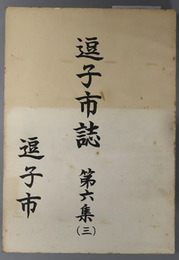 逗子市誌
第六集
(三)
逗子市